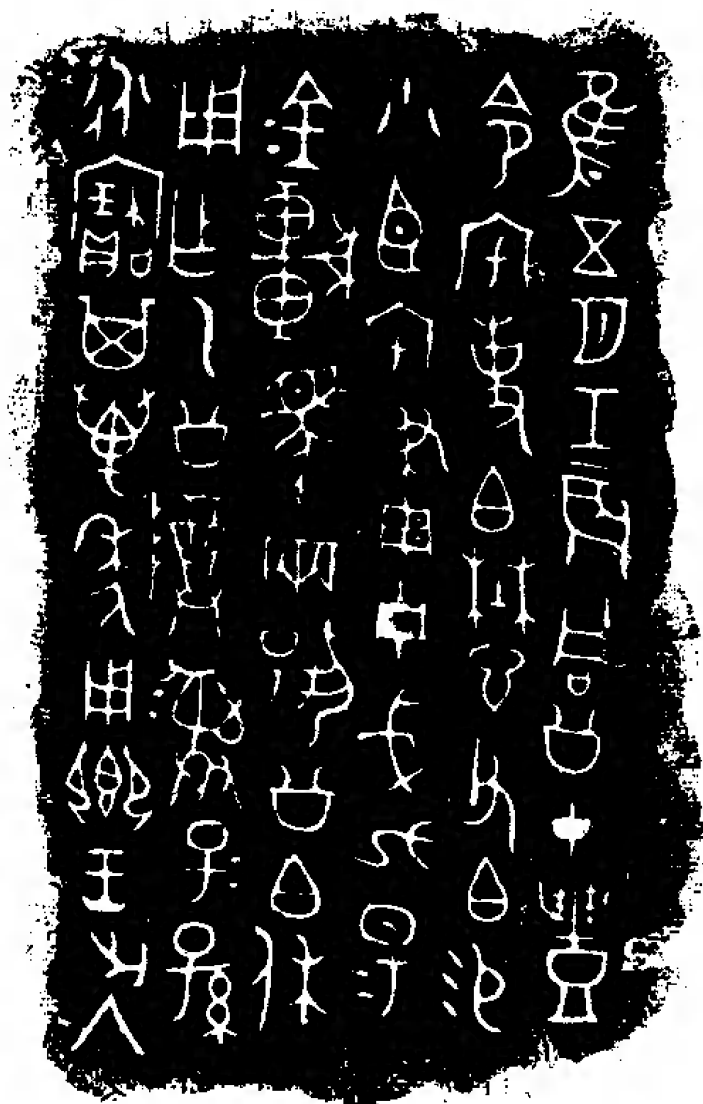 隹五月壬辰同公才豐
令宅事白懋父白易
小臣宅畫毌戈九易
金車馬兩揚公白休
用乍乙公尊彝子子孫
永寶其萬年用鄉王出入